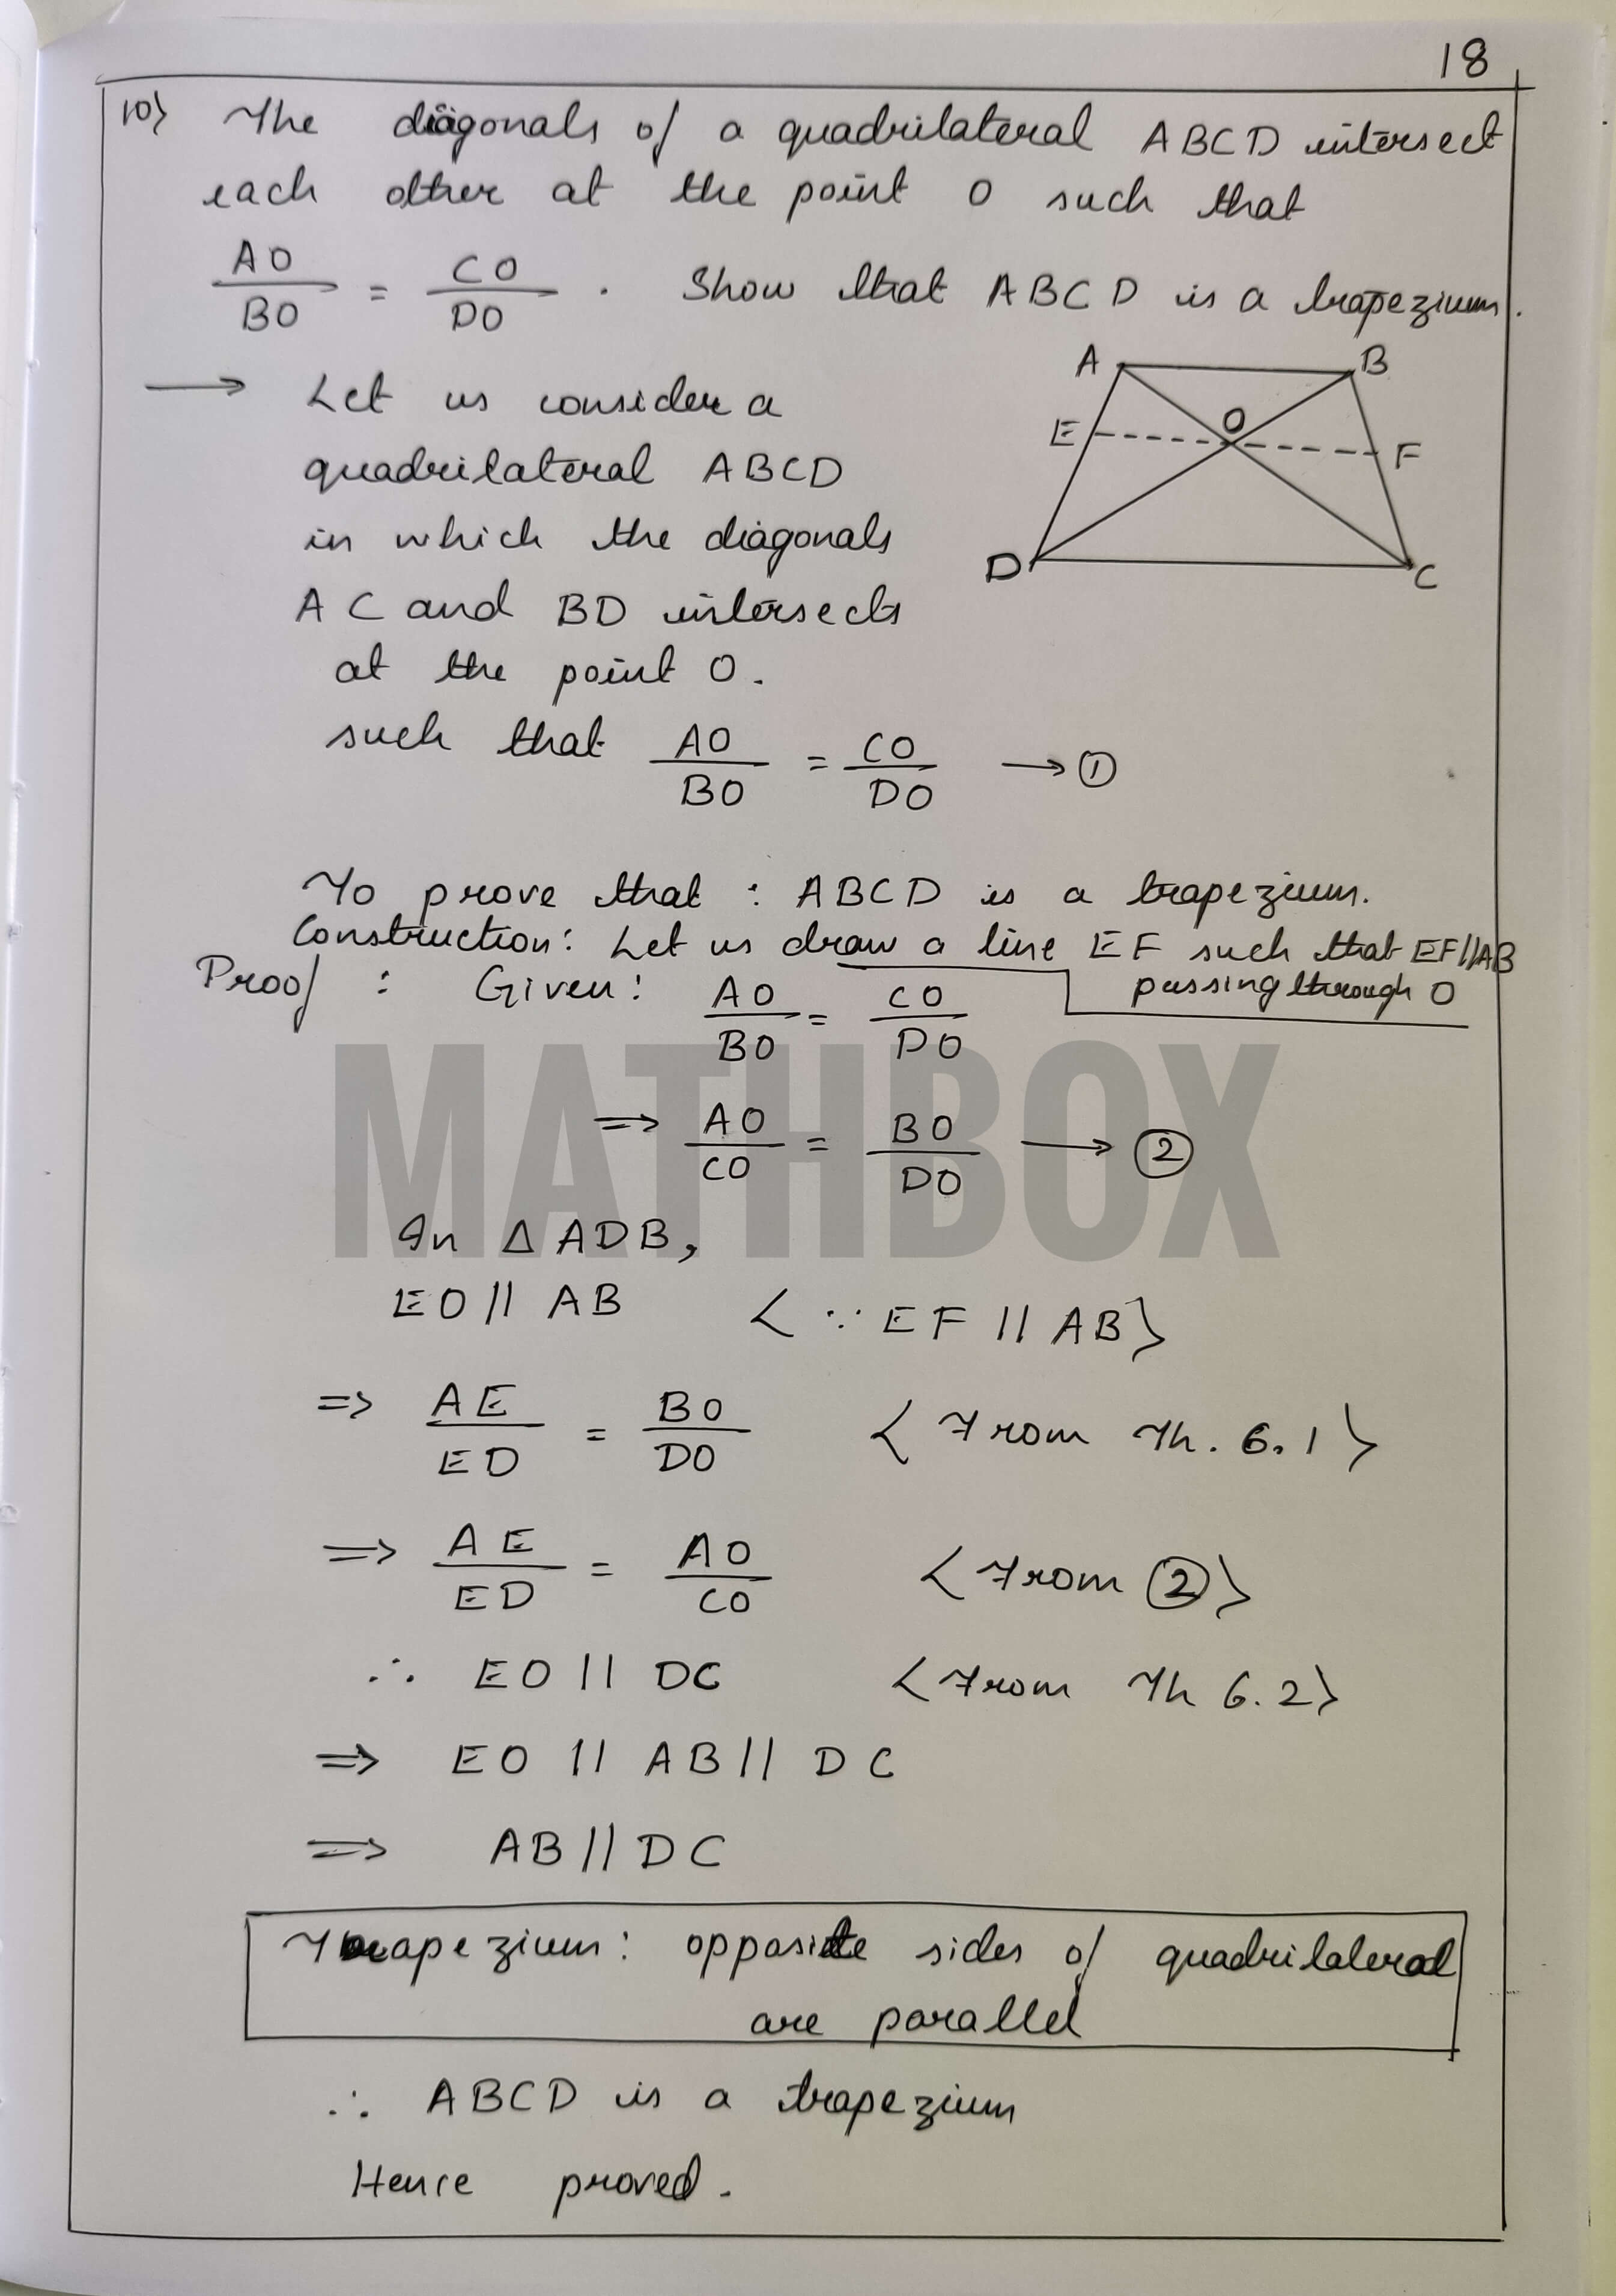 18
10) The diagonals of a quadrilateral ABCD intersect
each other at the point O such that
AO/BO = CO/DO . Show that ABCD is a trapezium.
A B
E O F
D C
→ Let us consider a
quadrilateral ABCD
in which the diagonals
AC and BD intersects
at the point O.
such that AO/BO = CO/DO → ①
To prove that : ABCD is a trapezium.
Construction: Let us draw a line EF such that EF||AB
passing through O
Proof : Given: AO/BO = CO/DO
=> AO/CO = BO/DO → ②
MATHBOX
In △ ADB,
EO || AB < ∵ EF || AB>
=> AE/ED = BO/DO < From Th. 6.1 >
=> AE/ED = AO/CO < From ② >
∴ EO || DC < From Th 6.2>
=> EO || AB || DC
=> AB || DC
Trapezium: opposite sides of quadrilateral
are parallel
∴ ABCD is a trapezium
Hence proved.